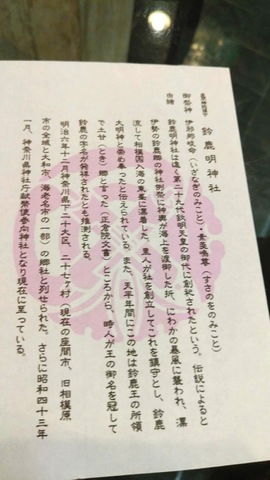 鈴鹿明神社
御祭神 伊邪那岐命(いざなぎのみこと)・素盞嗚尊(すさのをのみこと)
由緒
鈴鹿明神社は遠く第二十九代欽明天皇の御代に創祀されたという。伝説によると
伊勢の鈴鹿郷の神社例祭に神輿が海上を渡御した折、にわかの暴風に襲われ、漂
流して相模国入海の東峯に漂着した。里人が社を創立してこれを鎮守とし、鈴鹿
大明神と崇め奉ったと伝えられている。また、天平年間にこの地は鈴鹿王の所領
で土甘(とき)郷と言った(正倉院文書)ところから、時人が王の御名を冠して
鈴鹿の字名が発祥されたとも推測される。
明治六年十二月神奈川県下二十大区、二十七ケ村(現在の座間市、旧相模原
市の全域と大和市、海老名市の一部)の郷社と列せられた。さらに昭和四十三年
一月、神奈川県神社庁献幣使参向神社となり現在に至っている。